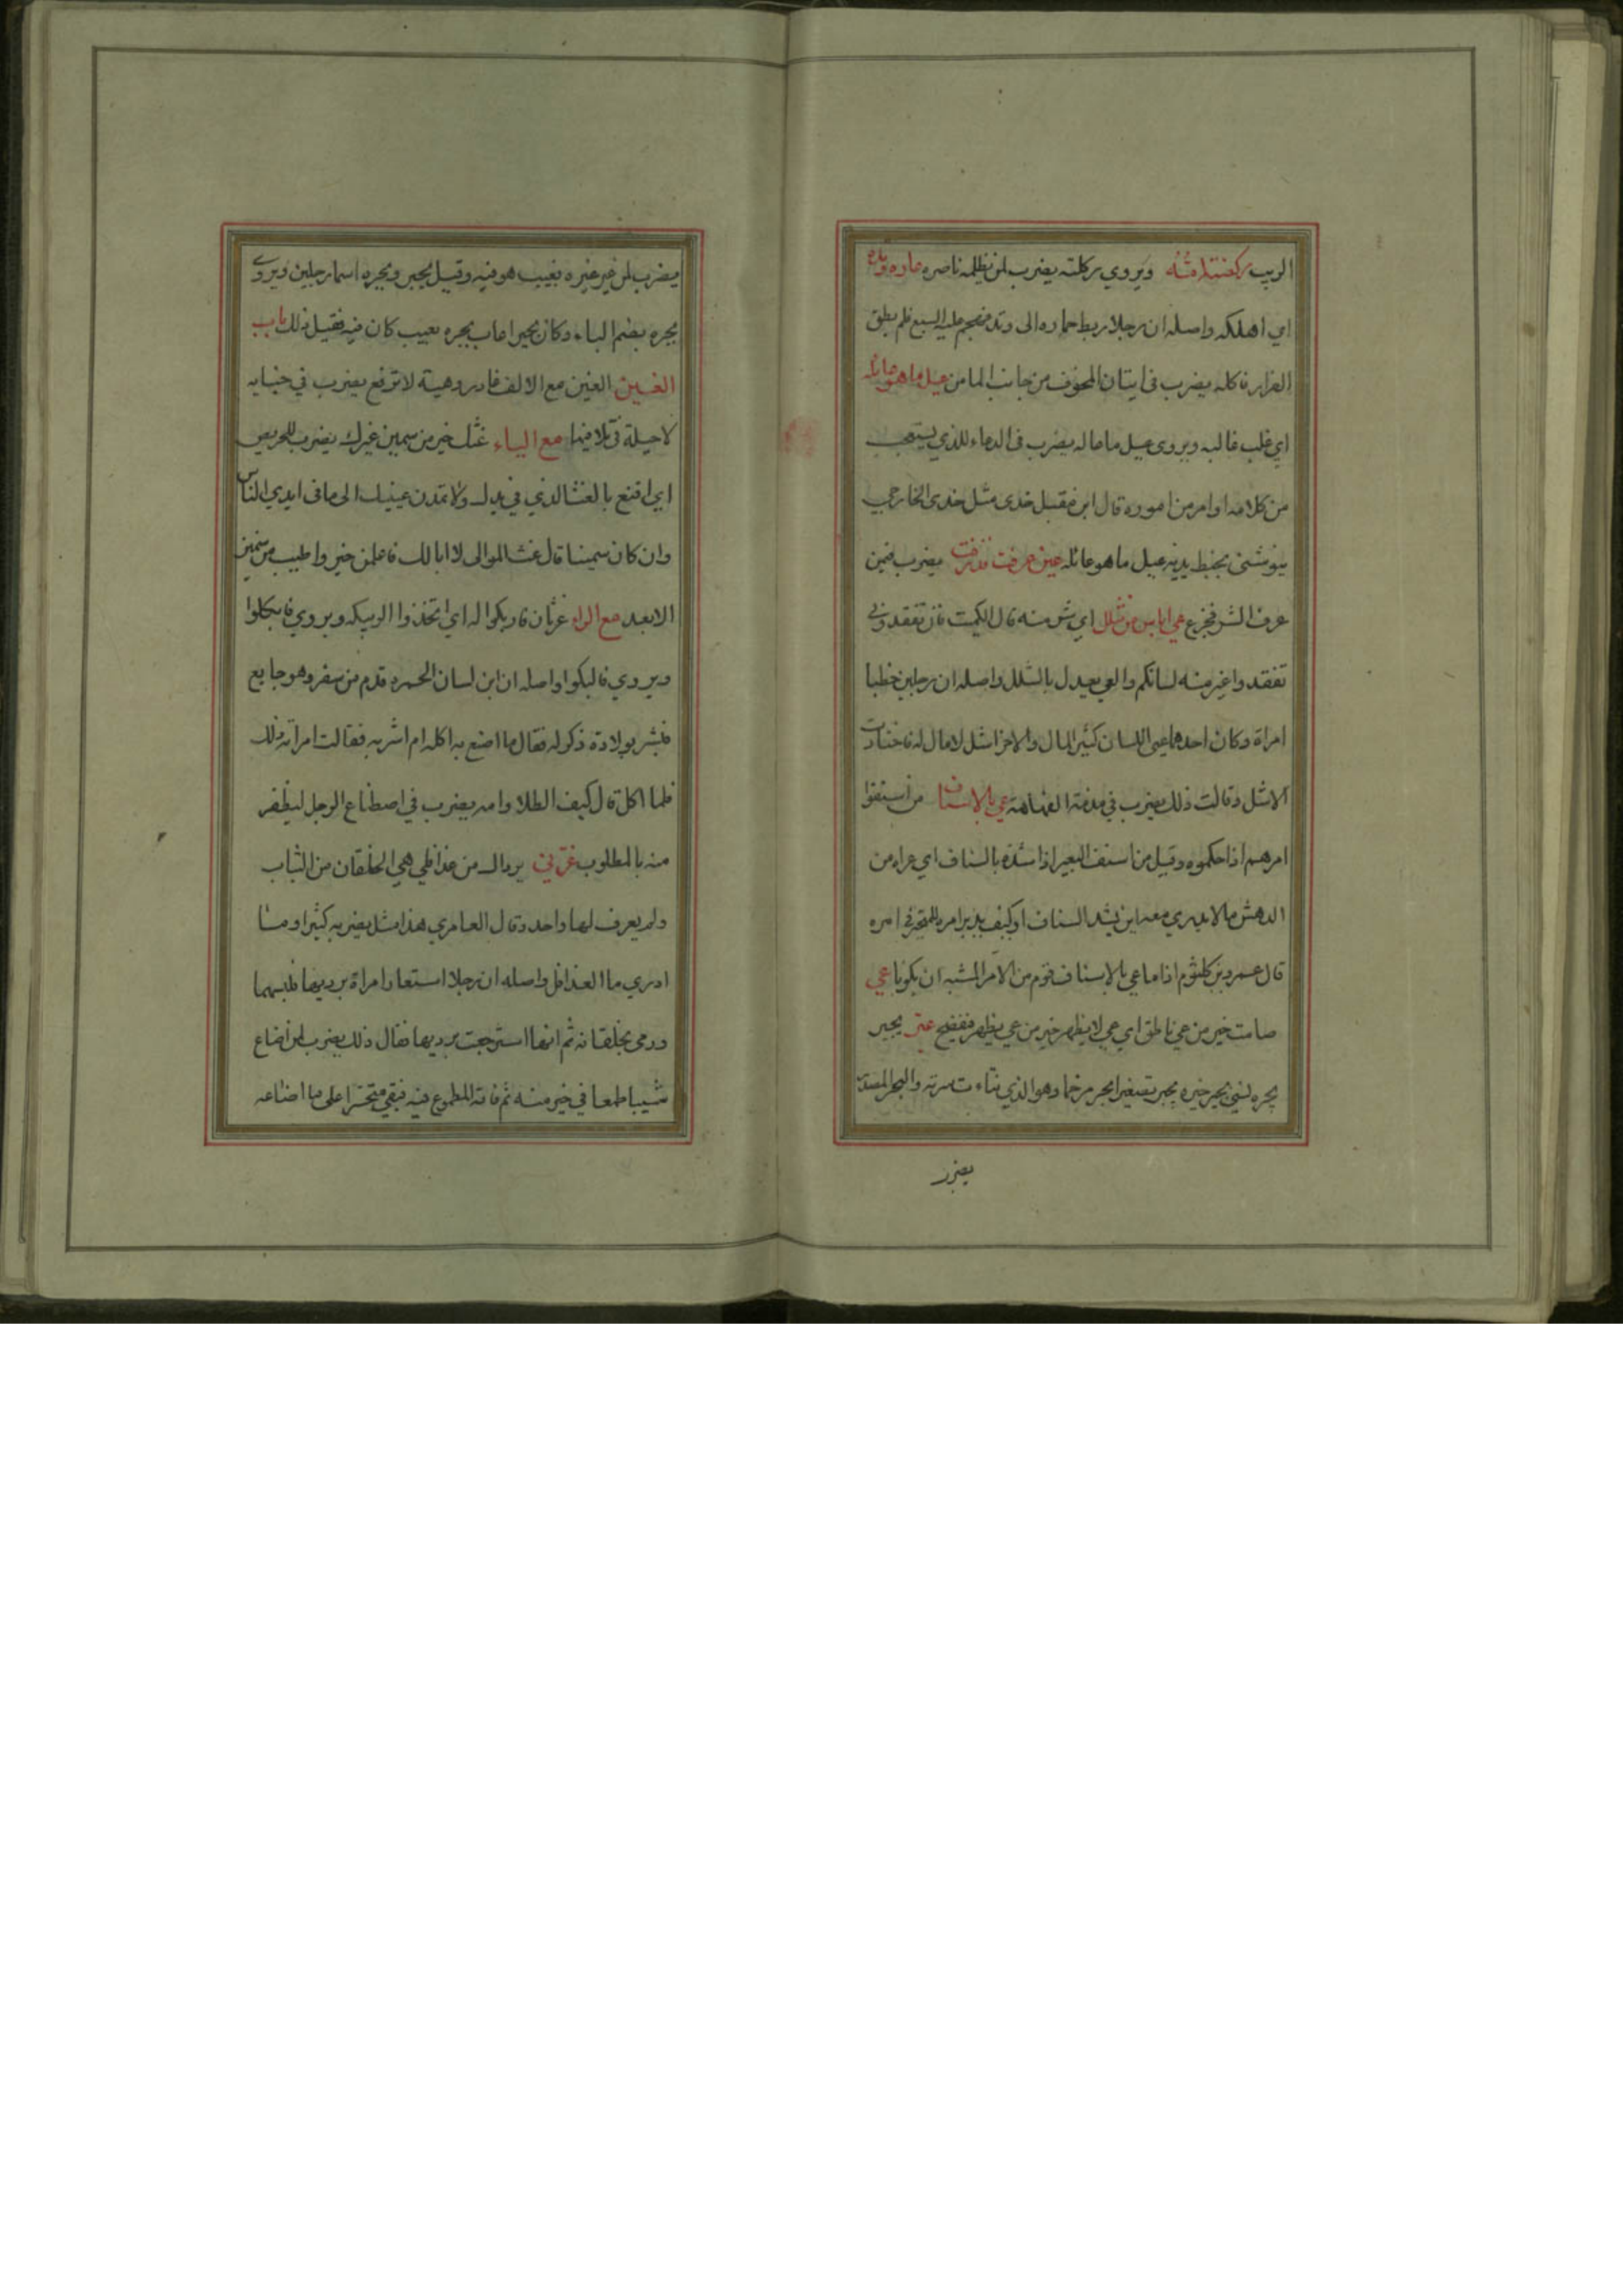 الريب ركضتك امه ويروي ركلته يضرب لمن يظلمه ناصره عاره وتده
اي اهلكه واصله ان رجلا ربط حماره الى وتد فهجم عليه السبع فلم يطق
الفرار فاكله يضرب فى اتيان المخوف من جانب المامن عيل ما هو عائله
اي غلب غالبه ويروى عيل ماعاله يضرب فى الدعاء للذي يستعجب
من كلامه او امر من اموره قال ابن مقبل خدى مثل خدى الخارجي
ينوشنى بخبط يديه عيل ما هو عائله عين عرفت فذرفت يضرب فيمن
عرف الشر فجزع عي اباس من شلل اي شر منه قال الكميت فان
تفقدوا غير منه لسانكم والعي يعدل بالشلل واصله ان رجلين خطبا
امراة وكان احدهما عيي اللسان كثير المال والاخر اشل لا مال له فاختارت
الاشل وقالت ذلك يضرب في مذمة الفهاهة عي بالاسناف من اسنفوا
امرهم اذا حكموه وقيل من اسنف البعير اذا شده بالسناف اي عراه من
الدهش ما لا يدري معه اين يشد السناف او كيف يدبر امره للمتحير فى امره
قال عمرو بن كلثوم اذا ما عي بالاسناف قوم من الامر المشبه ان يكونا عي
صامت خير من عي ناطق اي عي لا يظهر خير من عي يظهر فيفضح عير بجير
بجره نسي بجير خبره بجير تصغير ابجر مرخما وهو الذي نتاءت سرته والبجر المصدر
يضرب
يضرب لمن عير غيره بعيب هو فيه وقيل بجير وبجره اسما رجلين ويروى
بجره بضم الباء وكان بجير اعاب بجره بعيب كان فيه فقيل ذلك باب
الغين الغين مع الالف غادر وهية لا ترقع يضرب في جنايه
لا حيلة فى تلافيها مع الياء غثك خير من سمين غيرك يضرب للحريص
اي اقنع بالغث الذي في يدك ولا تمدن عينيك الى ما فى ايدي الناس
وان كان سمينا قال غث الموالى لا ابالك فاعلمن خير واطيب من سمين
الابعد مع الراء غرثان فاربكوا له اي اتخذوا الربيكه ويروي فابكلوا
ويروي فالبكوا واصله ان ابن لسان الحمره قدم من سفر وهو جايع
فبشر بولادة ذكر له فقال ما اصنع به اكله ام اشربه فقالت امراته ذلك
فلما اكل قال كيف الطلا وامه يضرب في اصطناع الرجل ليظفر
منه بالمطلوب غرني برداك من غدافلي هي الخلقان من الثياب
ولم يعرف لها واحد وقال العامري هذا مثل يضربه كثيرا وما
ادري ما الغدافل واصله ان رجلا استعار امراة برديها فلبسهما
ورمى بخلقانه ثم انها استرجعت برديها فقال ذلك يضرب لمن اضاع
شيبا طمعا في خير منه ثم فاته المطموع فيه فبقي متحسرا على ما اضاعه